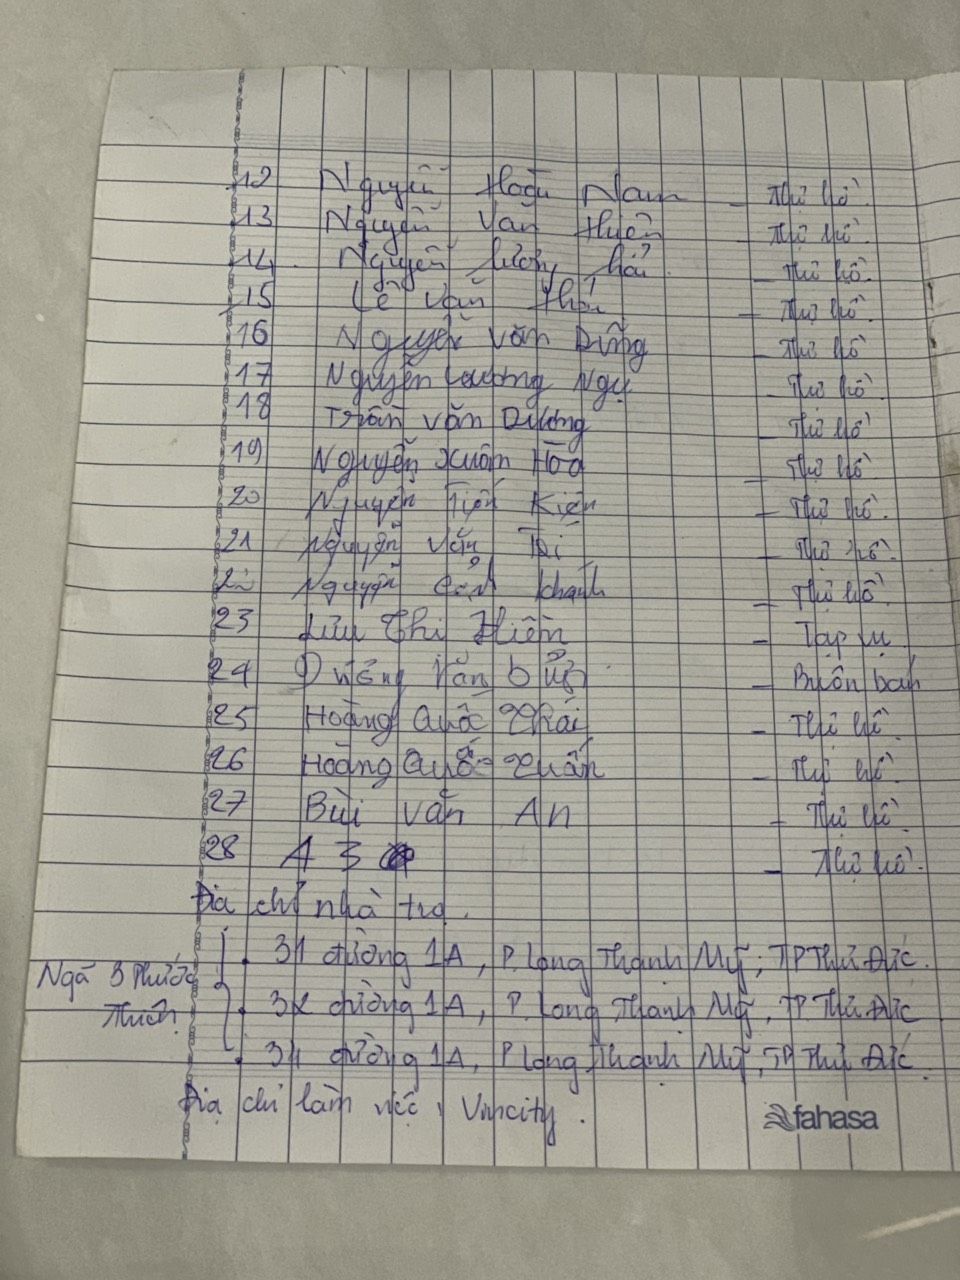 12 Nguyễn Hoài Nam - Thợ hồ.
13 Nguyễn Văn Hiền - Thợ hồ.
14. Nguyễn lương hải - Thợ hồ.
15 Lê Văn - Thợ hồ.
16 Nguyễn Văn Dũng - Thợ hồ
17 Nguyễn Lương Ngụ - Thợ hồ.
18 Trần Văn Dương - Thợ hồ
19 Nguyễn Xuân Hòa - Thợ hồ.
20 Nguyễn Tiến Kiện - Thợ hồ.
21 Nguyễn Văn - Thợ hồ.
22 Nguyễn Cảnh khánh - Thợ hồ.
23 Lưu Thị Hiền - Tạp vụ
24 Dương Văn - Buôn bán
25 Hoàng Quốc Thái - Thợ hồ.
26 Hoàng Quốc Tuấn - Thợ hồ.
27 Bùi Văn An - Thợ hồ.
28 A 3 - Thợ hồ.
Địa chỉ nhà trọ.
. 31 đường 1A, P. Long Thạnh Mỹ, TP Thủ Đức.
Ngã 3 Phước Thiện
. 32 đường 1A, P. Long Thạnh Mỹ, TP Thủ Đức
. 34 đường 1A, P Long Thạnh Mỹ, TP Thủ Đức.
Địa chỉ làm việc, Vincity.
fahasa